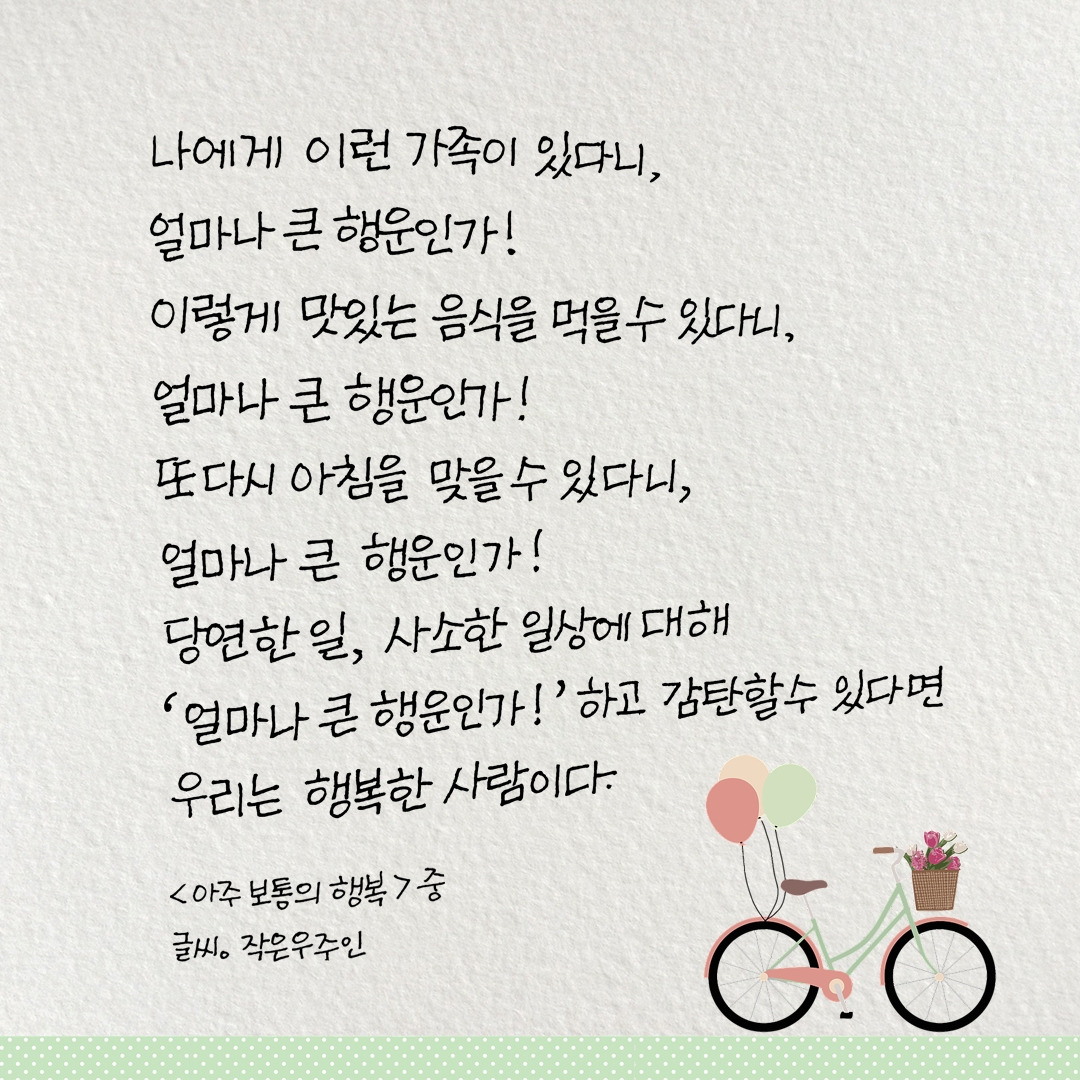 나에게 이런 가족이 있다니,
얼마나 큰 행운인가!
이렇게 맛있는 음식을 먹을 수 있다니,
얼마나 큰 행운인가!
또 다시 아침을 맞을 수 있다니,
얼마나 큰 행운인가!
당연한 일, 사소한 일상에 대해
‘얼마나 큰 행운인가!’ 하고 감탄할 수 있다면
우리는 행복한 사람이다.
<아주 보통의 행복> 중
글씨。 작은우주인